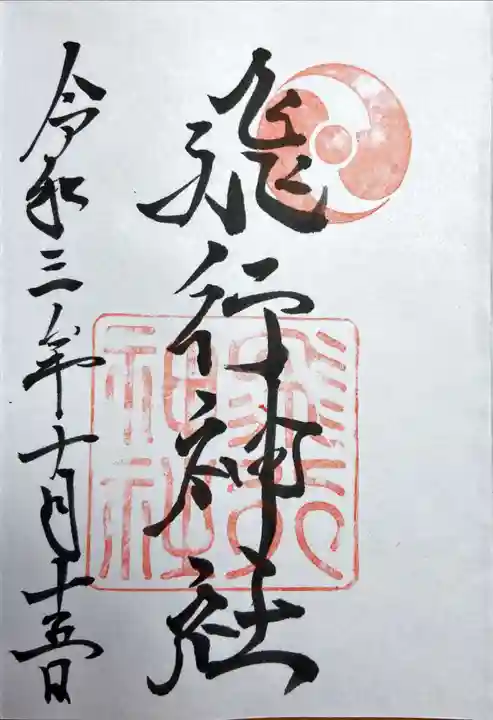 飛行神社
飛行神社
令和三年十月十五日